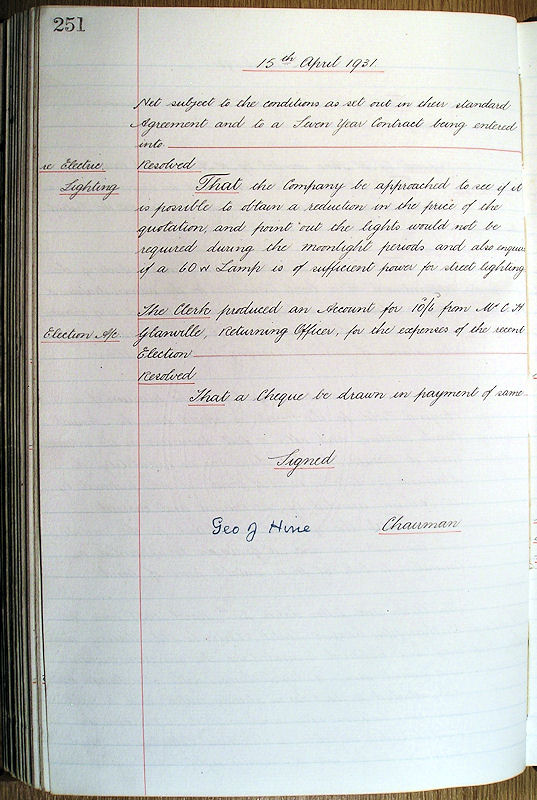 251
15th April 1931
Net subject to the conditions as set out in their standard
Agreement and to a Seven Year Contract being entered
into
re Electric Resolved
Lighting That the Company be approached to see if it
is possible to obtain a reduction in the price of the
quotation, and point out the lights would not be
required during the moonlight periods and also enquire
if a 60 w Lamp is of sufficient power for street lighting
The Clerk produced an Account for 10/6 from Mr C. H
Election A/c. Glanville, Returning Officer, for the expenses of the recent
Election
Resolved
That a Cheque be drawn in payment of same
Signed
Geo J Hine Chairman